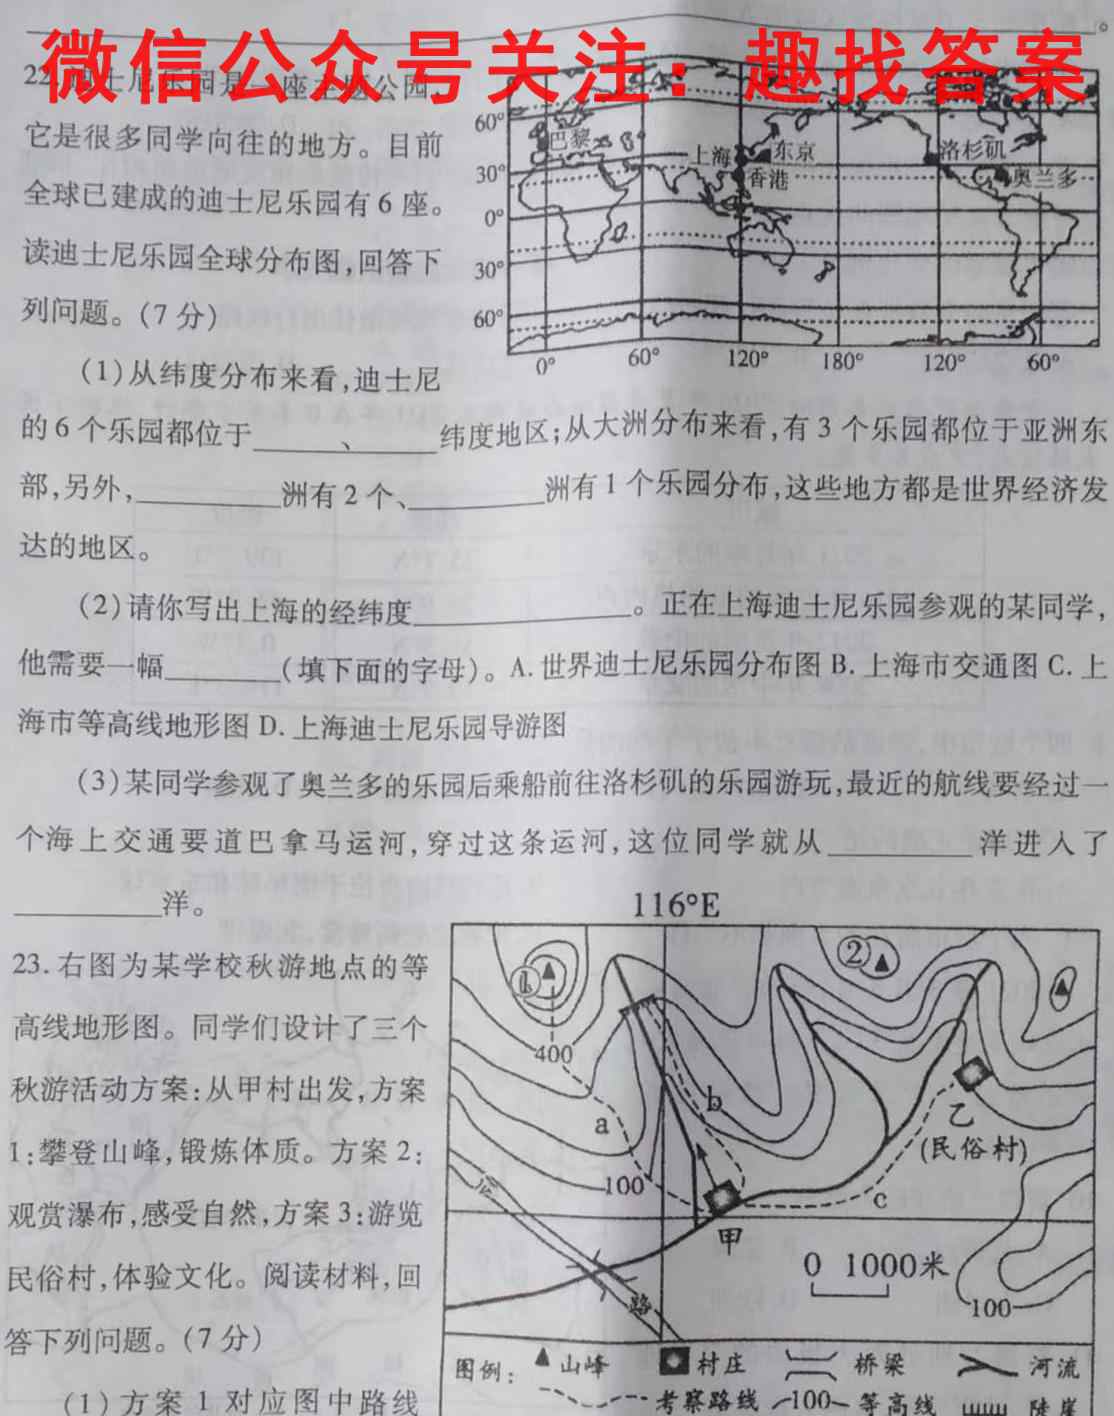 微信公众号关注：趣找答案
22.迪士尼乐园是一座主题公园,
它是很多同学向往的地方。目前
全球已建成的迪士尼乐园有6座。
读迪士尼乐园全球分布图,回答下
列问题。(7分)
60°
30°
0°
30°
60°
巴黎
上海
东京
香港
洛杉矶
奥兰多
0° 60° 120° 180° 120° 60°
(1)从纬度分布来看,迪士尼
的6个乐园都位于____、____纬度地区;从大洲分布来看,有3个乐园都位于亚洲东
部,另外,____洲有2个、____洲有1个乐园分布,这些地方都是世界经济发
达的地区。
(2)请你写出上海的经纬度____。正在上海迪士尼乐园参观的某同学,
他需要一幅____(填下面的字母)。A.世界迪士尼乐园分布图 B.上海市交通图 C.上
海市等高线地形图 D.上海迪士尼乐园导游图
(3)某同学参观了奥兰多的乐园后乘船前往洛杉矶的乐园游玩,最近的航线要经过一
个海上交通要道巴拿马运河,穿过这条运河,这位同学就从____洋进入了
____洋。
23.右图为某学校秋游地点的等
高线地形图。同学们设计了三个
秋游活动方案:从甲村出发,方案
1:攀登山峰,锻炼体质。方案2:
观赏瀑布,感受自然,方案3:游览
民俗村,体验文化。阅读材料,回
答下列问题。(7分)
(1)方案1对应图中路线
116°E
①
②
400
a
b
乙
(民俗村)
100
c
甲
0 1000米
路
100
图例: 山峰 村庄 桥梁 河流
考察路线 100 等高线 陡崖